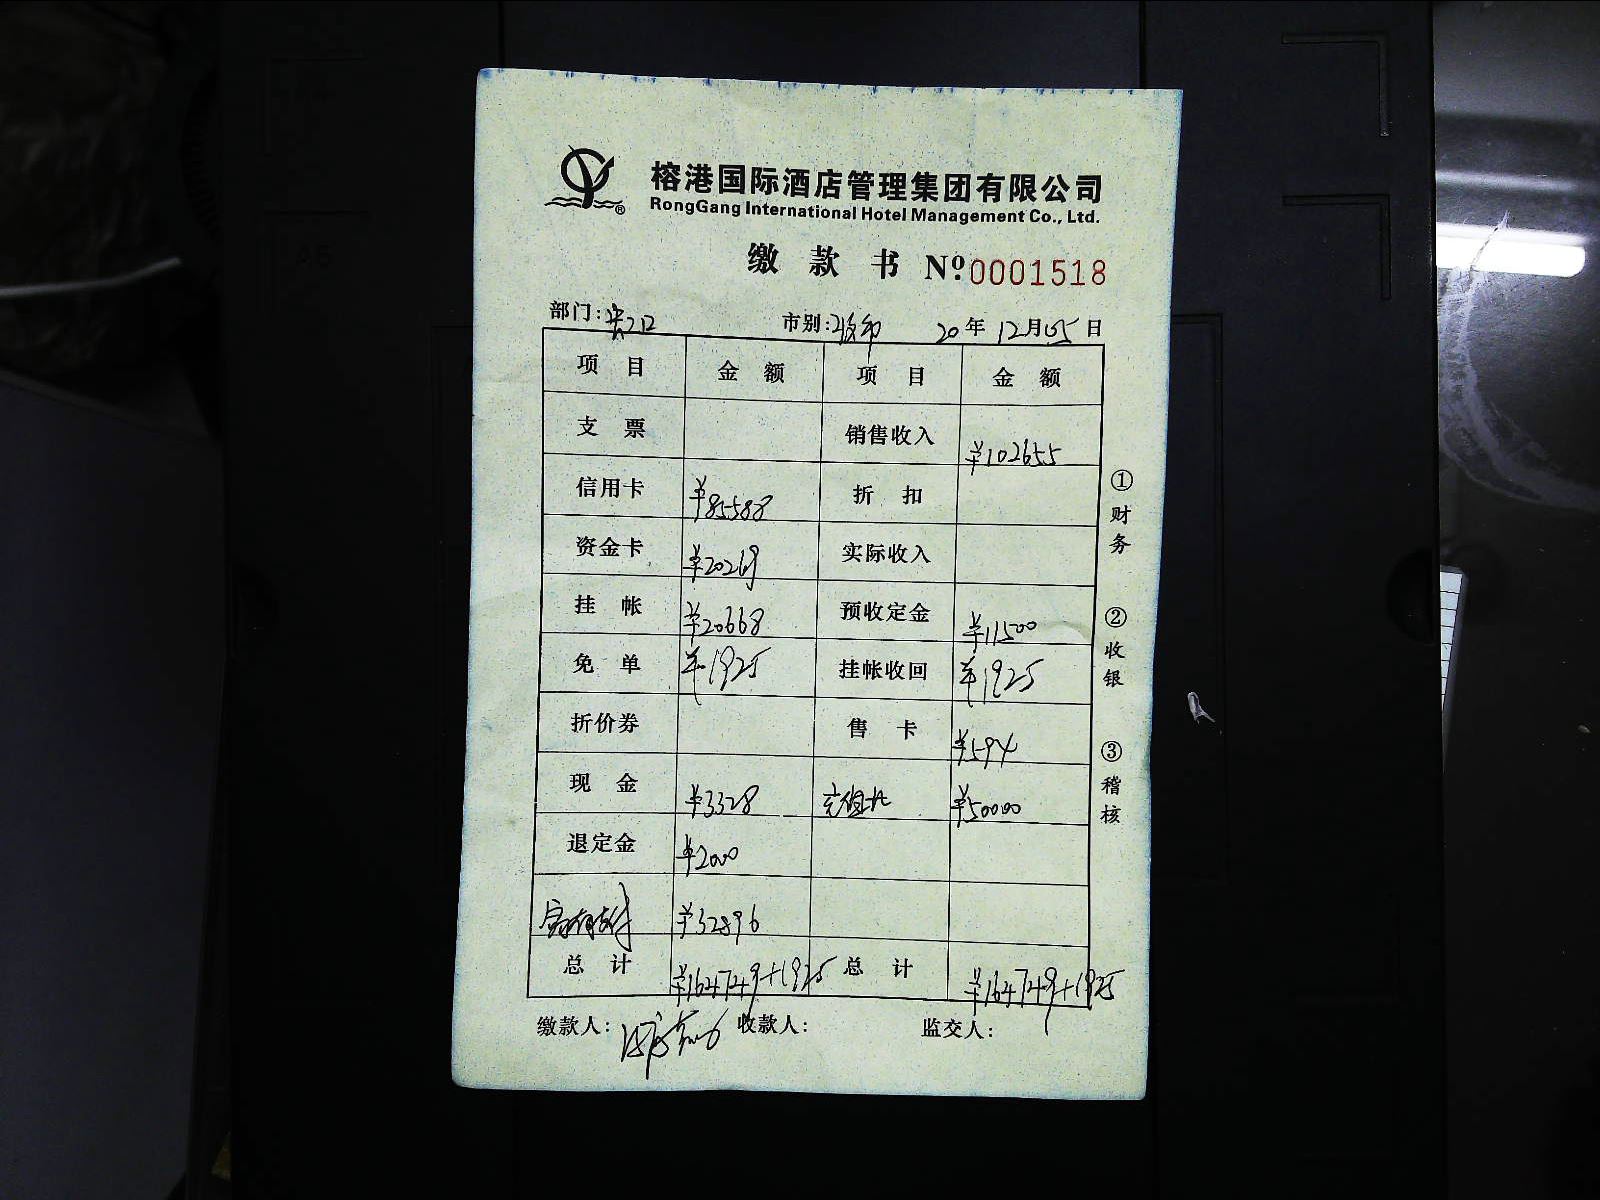 榕港国际酒店管理集团有限公司
RongGang International Hotel Management Co., Ltd.
缴款书 Nº 0001518
部门: 市别: 20年12月05日
项目 金额 项目 金额
支票 销售收入 ¥102655
信用卡 ¥85588 折扣
资金卡 ¥20269 实际收入
挂帐 ¥20668 预收定金 ¥11500
免单 ¥1925 挂帐收回 ¥1925
折价券 售卡 ¥594
现金 ¥3328 充值 ¥50000
退定金 ¥2000
¥32896
总计 ¥164749+1925 总计 ¥164749+1925
缴款人: 收款人: 监交人:
①财务
②收银
③稽核
A5